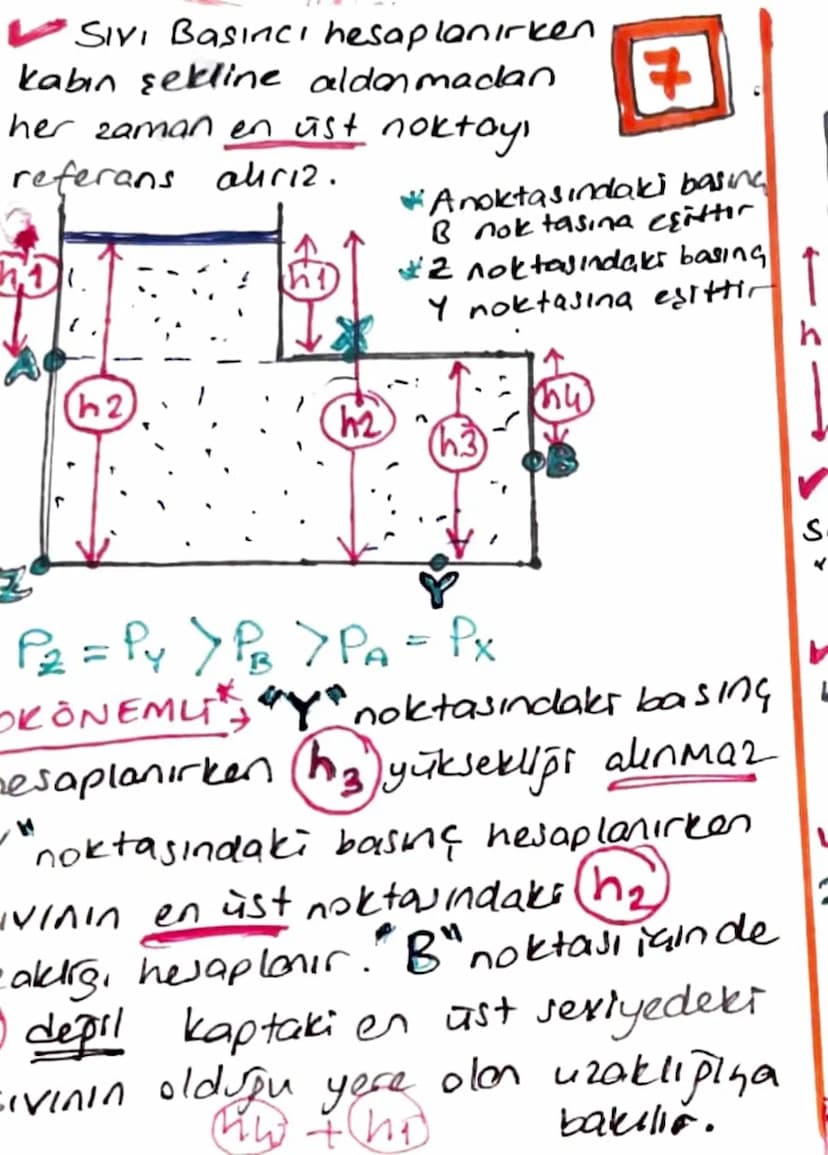 Sıvı Basıncı hesaplanırken
kabın şekline aldanmadan
her zaman en üst noktayı
referans alırız.
7
* A noktasındaki basınç
B noktasına eşittir
* Z noktasındaki basınç
Y noktasına eşittir
h1
h1
A
X
h2
h2
h3
h4
B
Z
Y
h
PZ = PY > PB > PA = PX
OK ÖNEMLİ* → "Y" noktasındaki basınç
hesaplanırken h3 yüksekliği alınmaz
" noktasındaki basınç hesaplanırken
ıvının en üst noktasındaki h2
zaklığı hesaplanır. "B" noktası içinde
değil kaptaki en üst seviyedeki
sıvının olduğu yere olan uzaklığına
h4 + h1 bakılır.